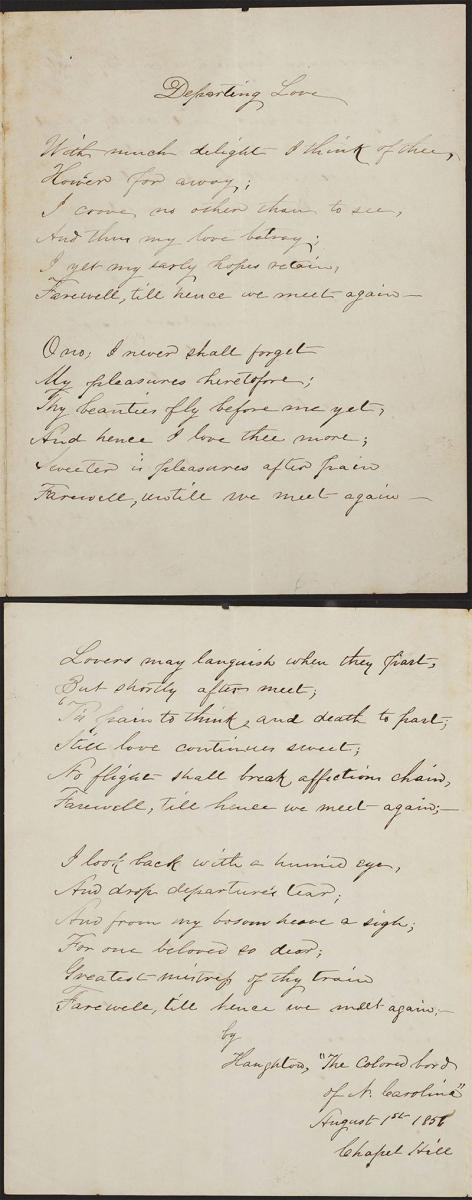 Departing Love
With much delight I think of thee,
far away;
I crave no other than to see,
And thus my love betray;
I yet my early hopes retain,
Farewell, till hence we meet again—
O no; I never shall forget
My pleasures heretofore;
Thy beauties fly before me yet,
And hence I love thee more;
Sweeter is pleasures after pain
Farewell, untill we meet again—
Lovers may languish when they part,
But shortly after meet;
'Tis pain to think, and death to part;
Still love continues sweet;
No flight shall break affections chain,
Farewell, till hence we meet again;—
I look back with a humid eye,
And drop departure's tear;
And from my bosom heave a sigh;
For one beloved so dear;
Greatest mistress of thy train
Farewell, till hence we meet again,—
by
"The Colored bard
of N. Carolina"
August 1st
Chapel Hill